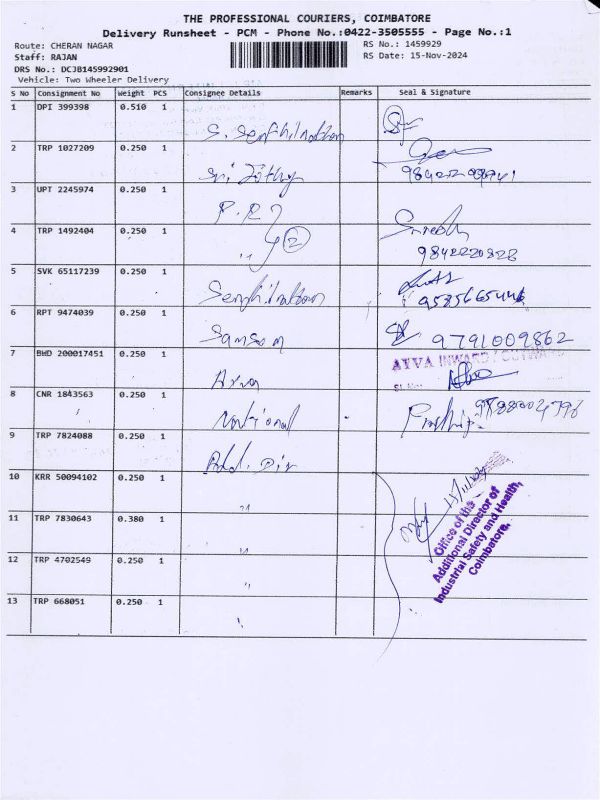 THE PROFESSIONAL COURIERS, COIMBATORE
Delivery Runsheet - PCM - Phone No.:0422-3505555 - Page No.:1
Route: CHERAN NAGAR
RS No.: 1459929
Staff: RAJAN
RS Date: 15-Nov-2024
DRS No.: DCJB145992901
Vehicle: Two Wheeler Delivery
S No Consignment No Weight PCS Consignee Details Remarks Seal & Signature
1 DPI 399398 0.510 1
S. Senthilnathan
2 TRP 1027209 0.250 1
Sri Jothy
3 UPT 2245974 0.250 1
P.R.J
4 TRP 1492404 0.250 1 Suresh
,, 2 9842220828
5 SVK 65117239 0.250 1
Senthilnathan 9585665446
6 RPT 9474039 0.250 1
Samson 9791009862
7 BWD 200017451 0.250 1 AYVA INWARD / OUTWARD
Arva Sl. No.
8 CNR 1843563 0.250 1
National
9 TRP 7824088 0.250 1
Add. Dir
10 KRR 50094102 0.250 1 15/11/24
,,
11 TRP 7830643 0.380 1
,,
12 TRP 4702549 0.250 1
,,
13 TRP 668051 0.250 1
,,
Office of the
Additional Director of
Industrial Safety and Health,
Coimbatore.